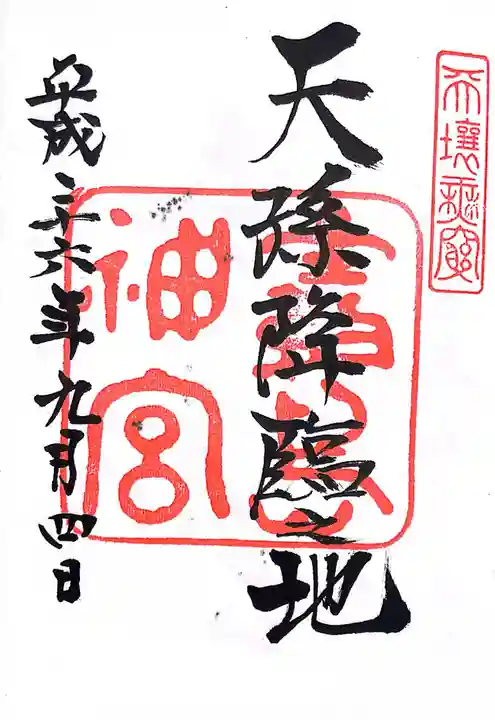 天壤無窮
天孫降臨之地
神宮
平成二十六年九月四日